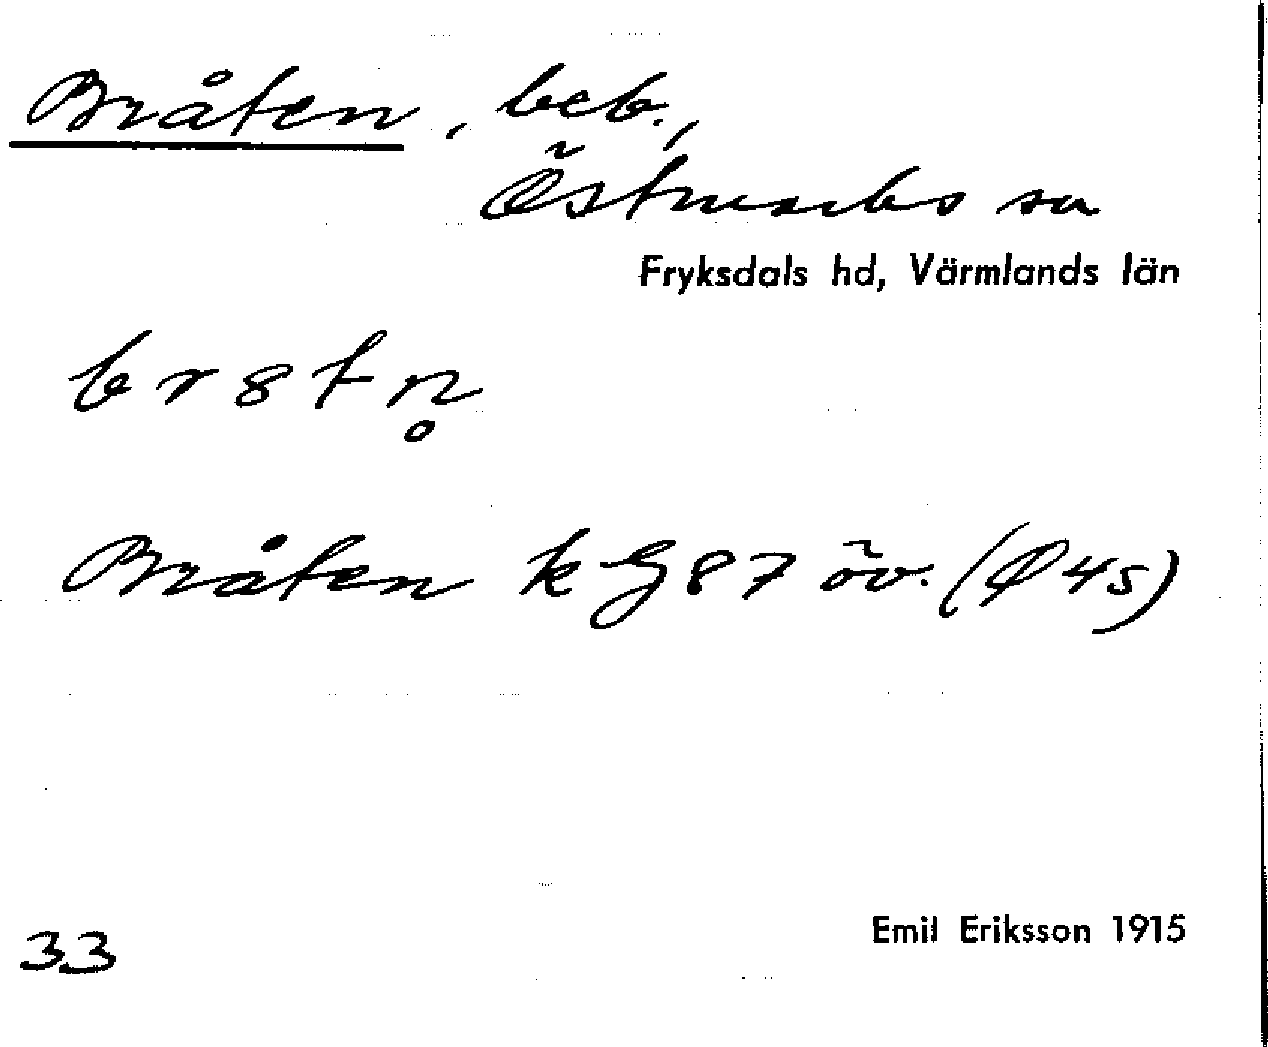 Bråten, beb.,
Östmarks sn
Fryksdals hd, Värmlands län
br8tn̥
Bråten k G87 öv. (Ø 4s)
33
Emil Eriksson 1915